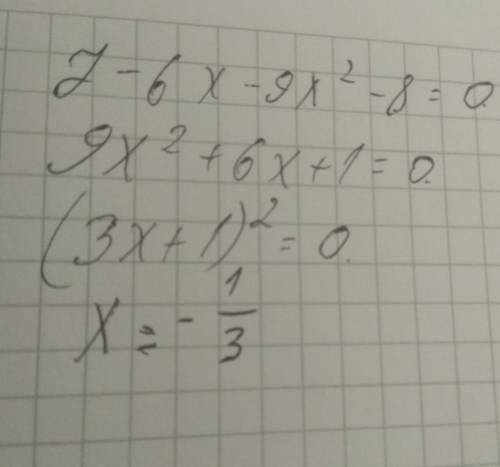 7 - 6x - 9x² - 8 = 0
9x² + 6x + 1 = 0.
(3x + 1)² = 0.
x = - 1/3